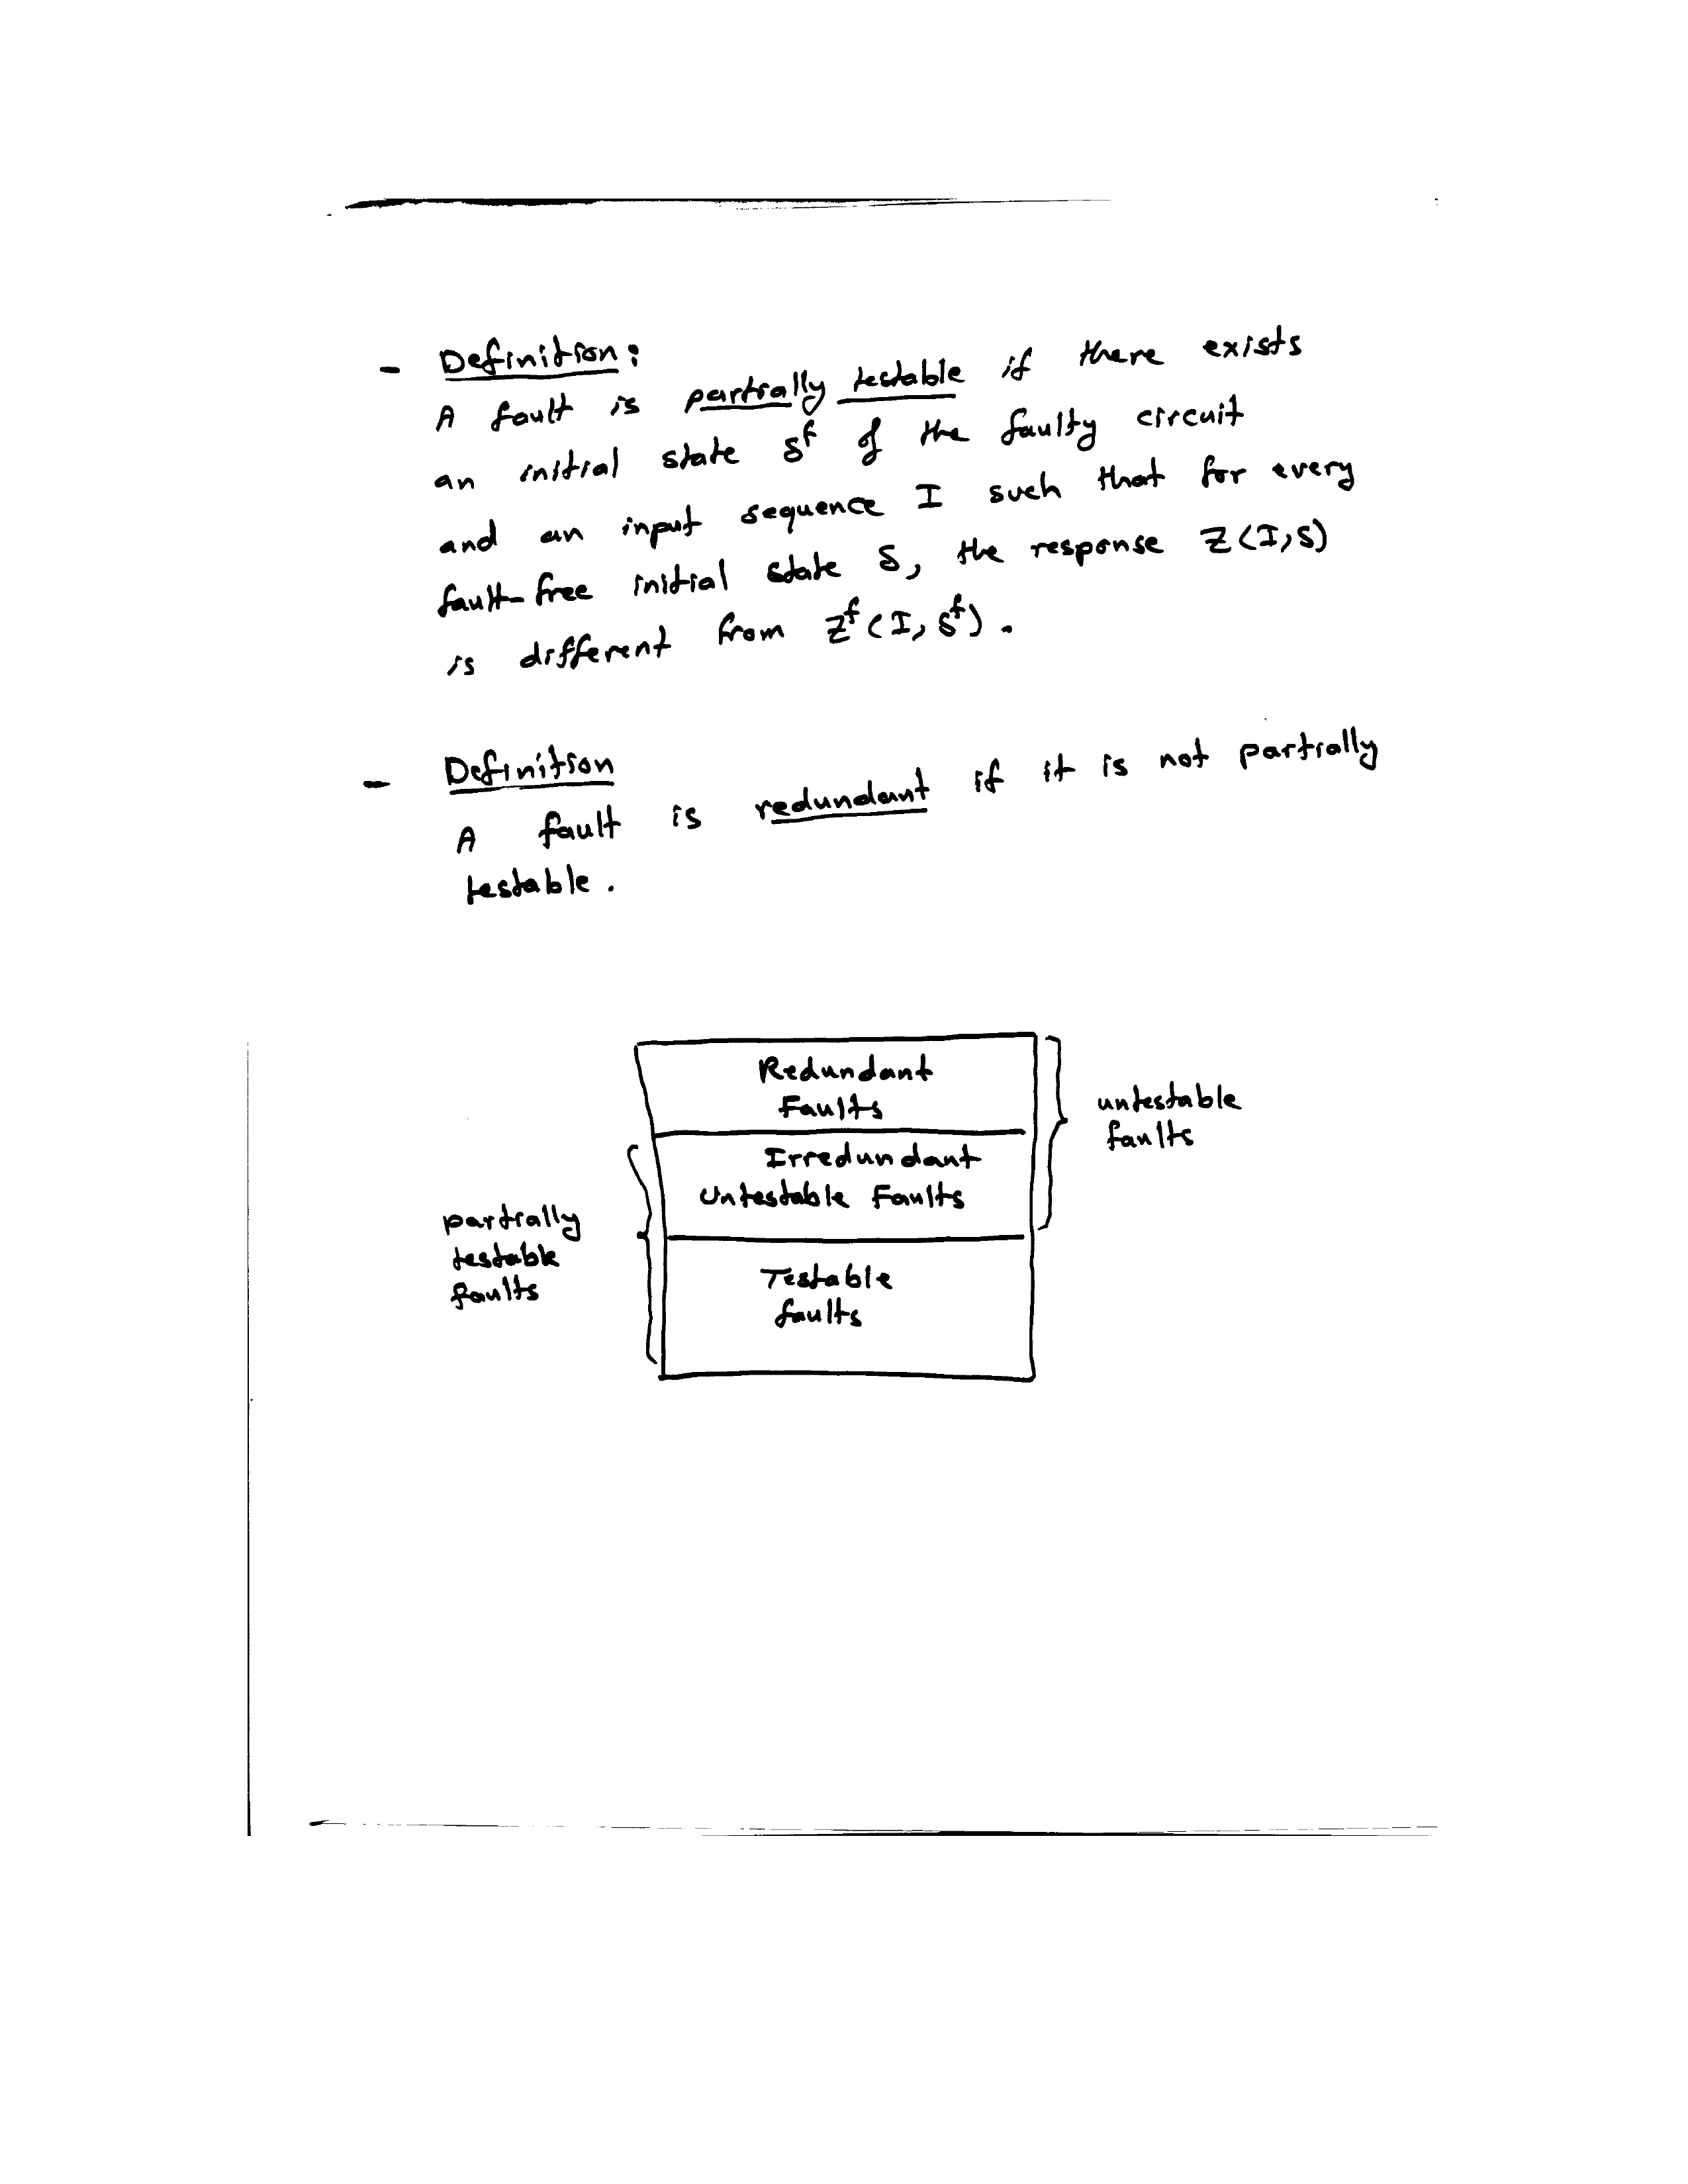 - Definition:
A fault is partially testable if there exists
an initial state S^f of the faulty circuit
and an input sequence I such that for every
fault-free initial state S, the response Z(I,S)
is different from Z^f(I, S^f).
- Definition
A fault is redundant if it is not partially
testable.
Redundant
Faults
untestable
faults
Irredundant
Untestable Faults
partially
testable
faults
Testable
faults